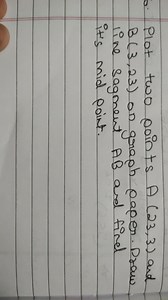 Plot two points A (23,3) and
B (3,23) on graph paper. Draw
line segment AB and find
it's mid point.